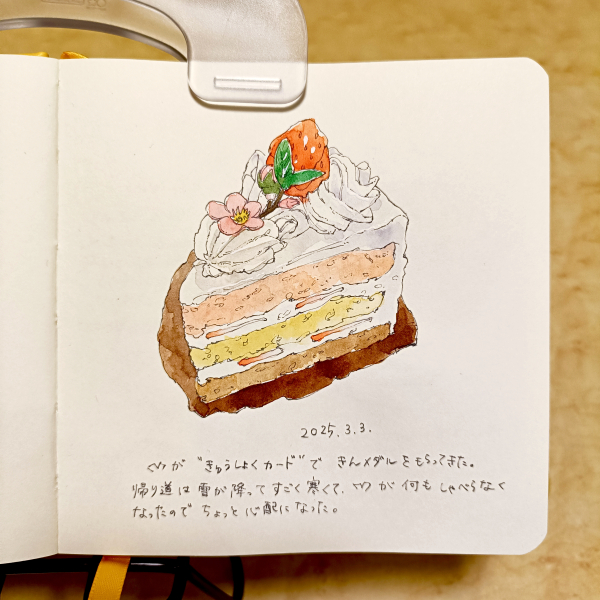 2025.3.3.
が "きゅうしょくカード" で きんメダルをもらってきた。
帰り道は雪が降ってすごく寒くて、 が 何も しゃべらなく
なったので ちょっと心配になった。